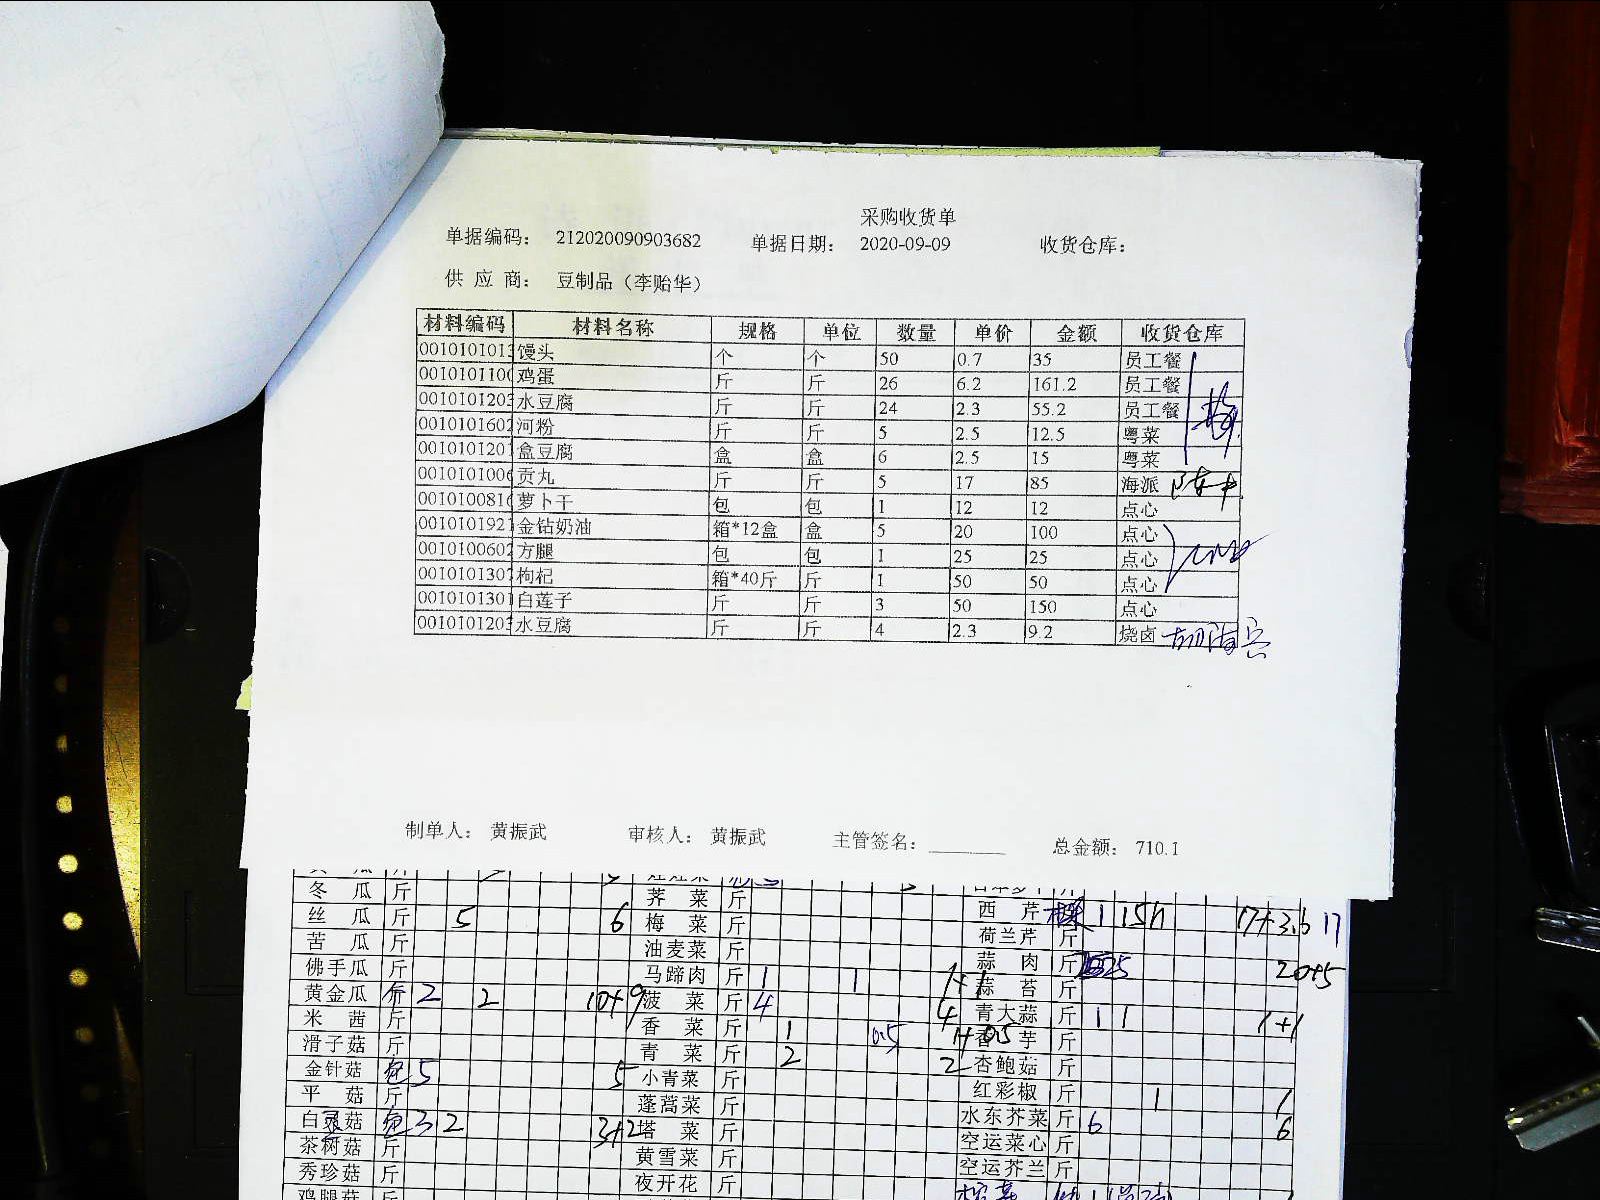 采购收货单
单据编码： 212020090903682 单据日期： 2020-09-09 收货仓库：
供 应 商： 豆制品（李贻华）
材料编码 材料名称 规格 单位 数量 单价 金额 收货仓库
0010101013 馒头 个 个 50 0.7 35 员工餐
001010110 鸡蛋 斤 斤 26 6.2 161.2 员工餐
0010101203 水豆腐 斤 斤 24 2.3 55.2 员工餐
0010101602 河粉 斤 斤 5 2.5 12.5 粤菜
001010120 盒豆腐 盒 盒 6 2.5 15 粤菜
001010100 贡丸 斤 斤 5 17 85 海派
001010081 萝卜干 包 包 1 12 12 点心
001010192 金钻奶油 箱*12盒 盒 5 20 100 点心
0010100602 方腿 包 包 1 25 25 点心
001010130 枸杞 箱*40斤 斤 1 50 50 点心
001010130 白莲子 斤 斤 3 50 150 点心
0010101203 水豆腐 斤 斤 4 2.3 9.2 烧卤
制单人： 黄振武 审核人： 黄振武 主管签名： 总金额： 710.1
冬 瓜 斤 荠 菜 斤
丝 瓜 斤 5 6 梅 菜 斤 西 芹 1 15 17+3.6 17
苦 瓜 斤 油麦菜 斤 荷兰芹 斤
佛手瓜 斤 马蹄肉 斤 1 1 1+1 蒜 肉 斤 25 20+5
黄金瓜 斤 2 2 10+9 菠 菜 斤 4 4 蒜 苔 斤
米 茜 斤 香 菜 斤 1 0.5 1+0.5 青大蒜 斤 1 1 1+1
滑子菇 斤 青 菜 斤 2 2 香 芋 斤
金针菇 包 5 5 小青菜 斤 杏鲍菇 斤
平 菇 斤 蓬蒿菜 斤 红彩椒 斤 1 1
白灵菇 包 3 2 3+2 塔 菜 斤 水东芥菜 斤 6 6
茶树菇 斤 黄雪菜 斤 空运菜心 斤
秀珍菇 斤 夜开花 斤 空运芥兰 斤
鸡腿菇 斤